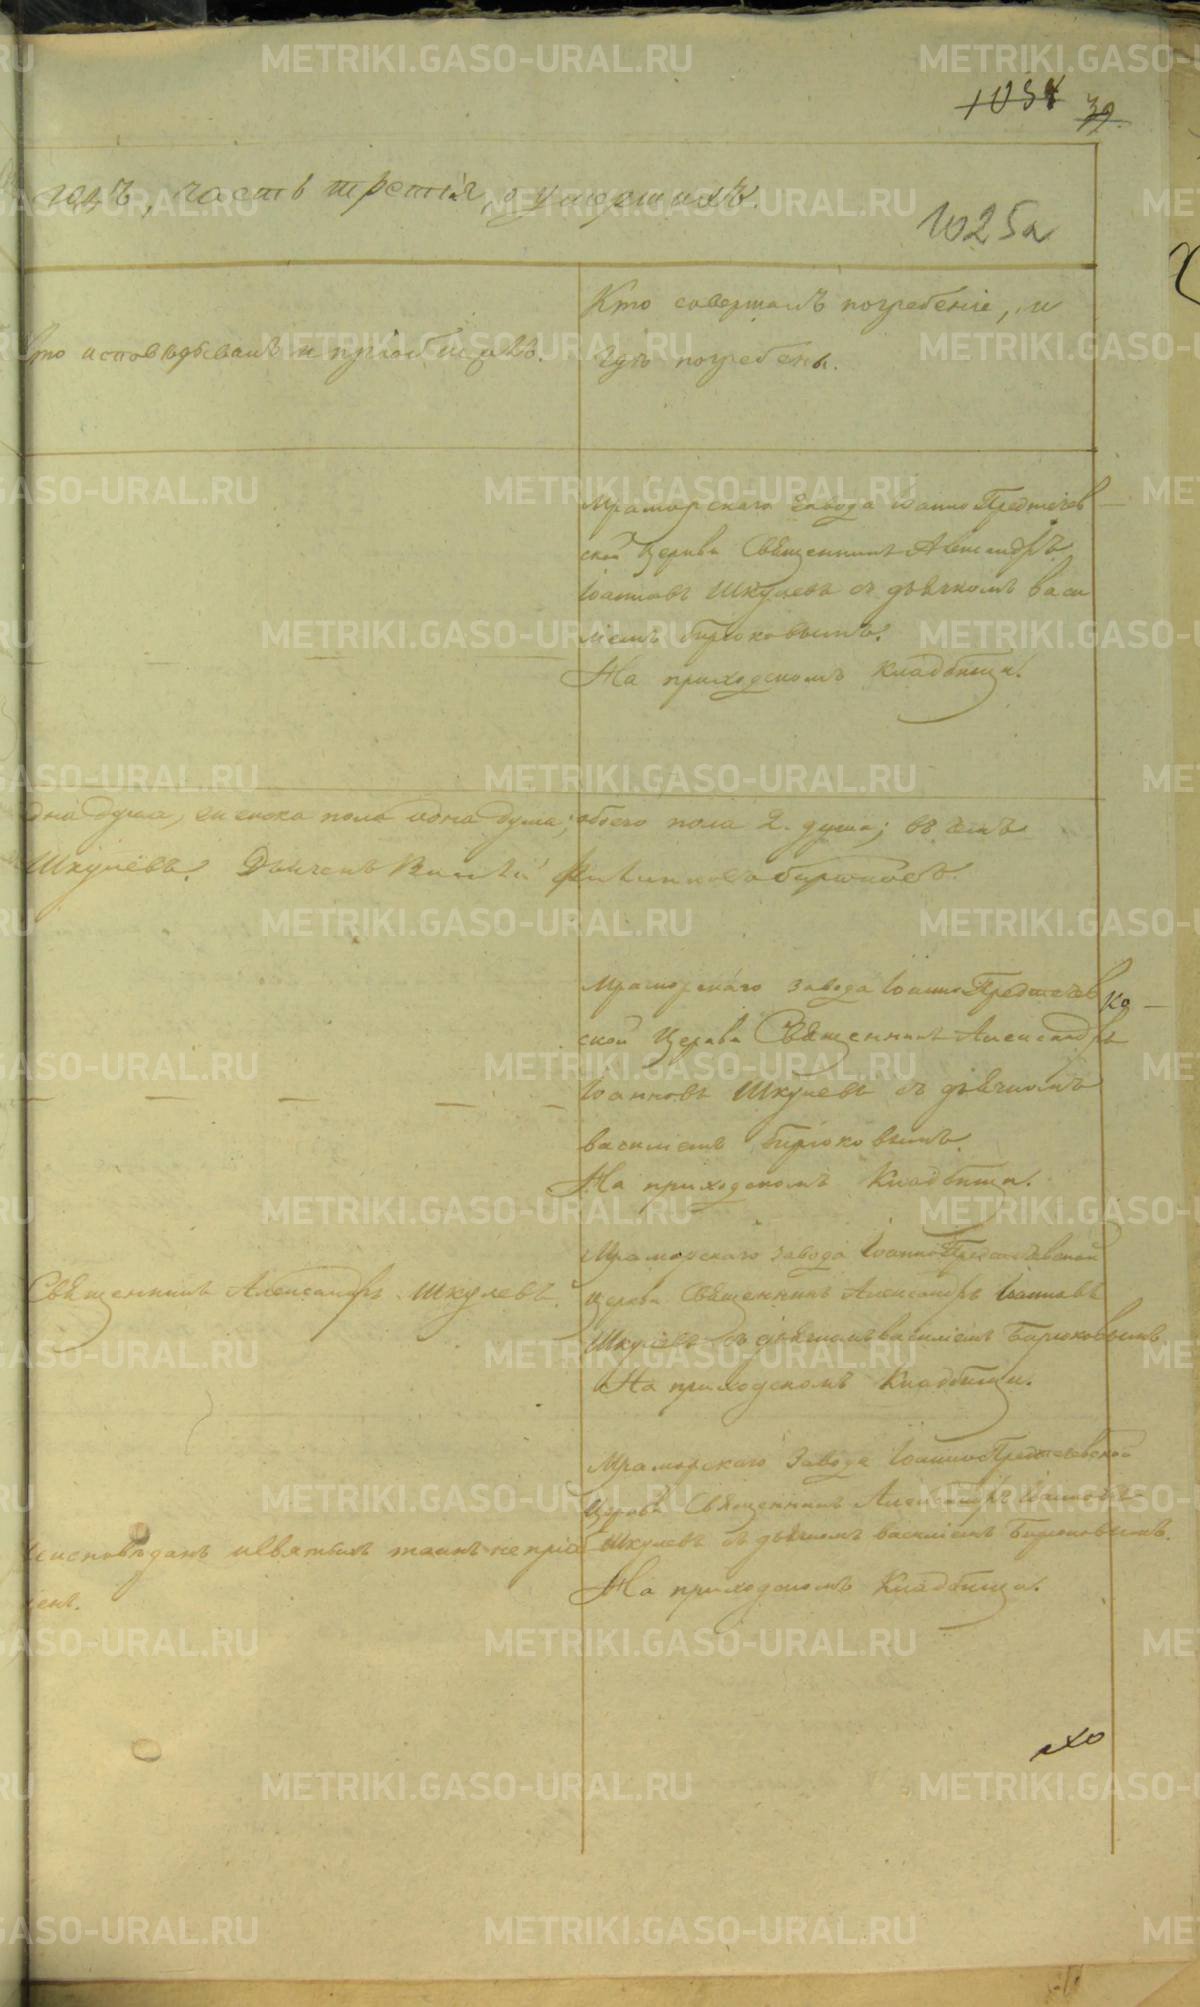 1034 39.
годъ, часть третія, о умершихъ.
1025а
Кто исповѣдывалъ и пріобщалъ.
Кто совершалъ погребеніе, и
гдѣ погребены.
Мраморскаго завода Іоанно Предтечев
ской Церкви Священникъ Александръ
Іоанновъ Шкулевъ съ дьячкомъ Васи
ліемъ Бирюковымъ.
На приходскомъ Кладбищи.
дна душа, женска пола одна душа; обоего пола 2. души; въ чемъ
Шкулевъ. Дьячекъ Василій Бирюковъ.
Мраморскаго завода Іоанно Предтечев
ской Церкви Священникъ Александръ
Іоанновъ Шкулевъ съ дьячкомъ
Василіемъ Бирюковымъ.
На приходскомъ Кладбищи.
Священникъ Александръ Шкулевъ.
Мраморскаго завода Іоанно Предтечевской
Церкви Священникъ Александръ Іоанновъ
Шкулевъ съ дьячкомъ Василіемъ Бирюковымъ.
На приходскомъ Кладбищи.
неисповѣданъ и Святыхъ таинъ не пріоб
щенъ.
Мраморскаго Завода Іоанно Предтечевской
Церкви Священникъ Александръ Іоанновъ
Шкулевъ съ дьячкомъ Василіемъ Бирюковымъ.
На приходскомъ Кладбищи.
METRIKI.GASO-URAL.RU